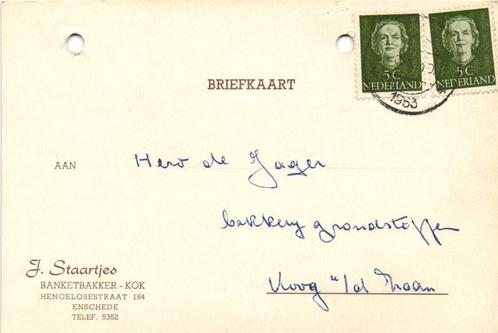 5C
NEDERLAND
5C
NEDERLAND
1953
BRIEFKAART
AAN
Hero de Jager
bakkery grondstoffen
Koog "/d Zaan
J. Staartjes
BANKETBAKKER - KOK
HENGELOSESTRAAT 184
ENSCHEDE
TELEF. 5352